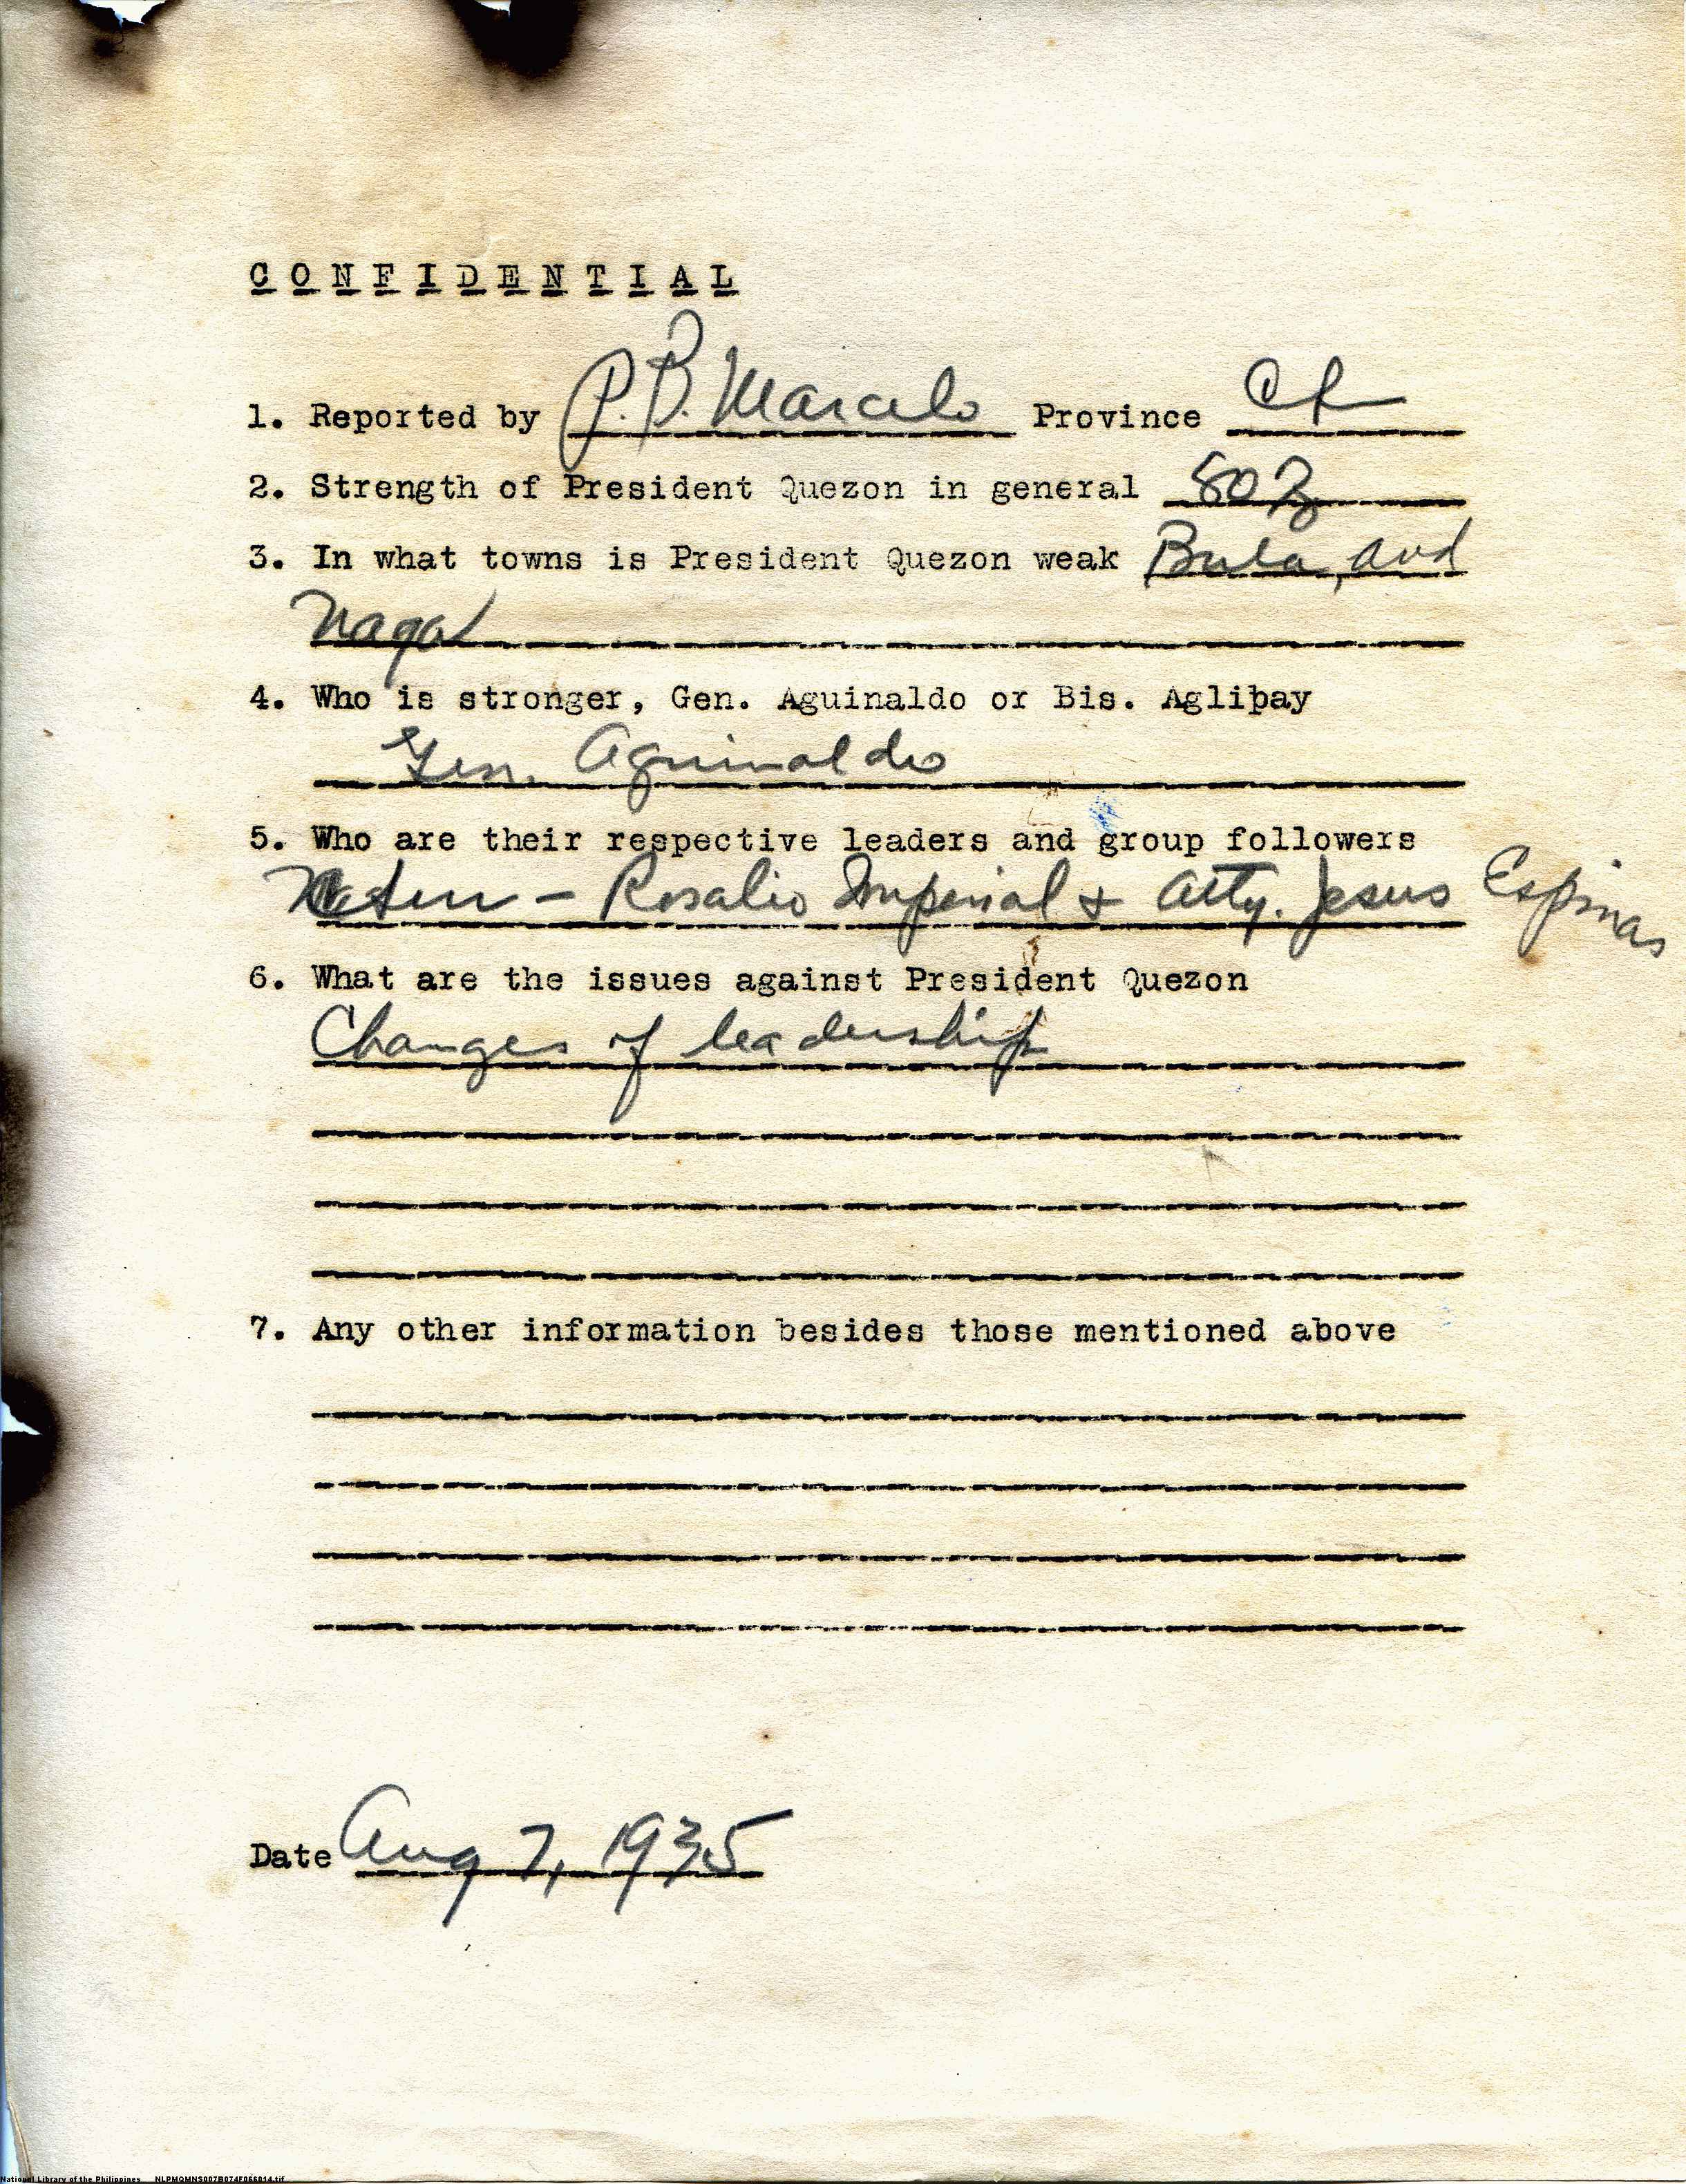 CONFIDENTIAL
1. Reported by P.B. Marcelo Province
2. Strength of President Quezon in general 80%
3. In what towns is President Quezon weak Bula, and
Naga
4. Who is stronger, Gen. Aguinaldo or Bis. Aglipay
Gen. Aguinaldo
5. Who are their respective leaders and group followers
– Rosalio Imperial & Atty. Jesus Espinas
6. What are the issues against President Quezon
Changes of leadership
7. Any other information besides those mentioned above
Date Aug 7, 1935
National Library of the Philippines NLPMQMNS007B074F066014.tif